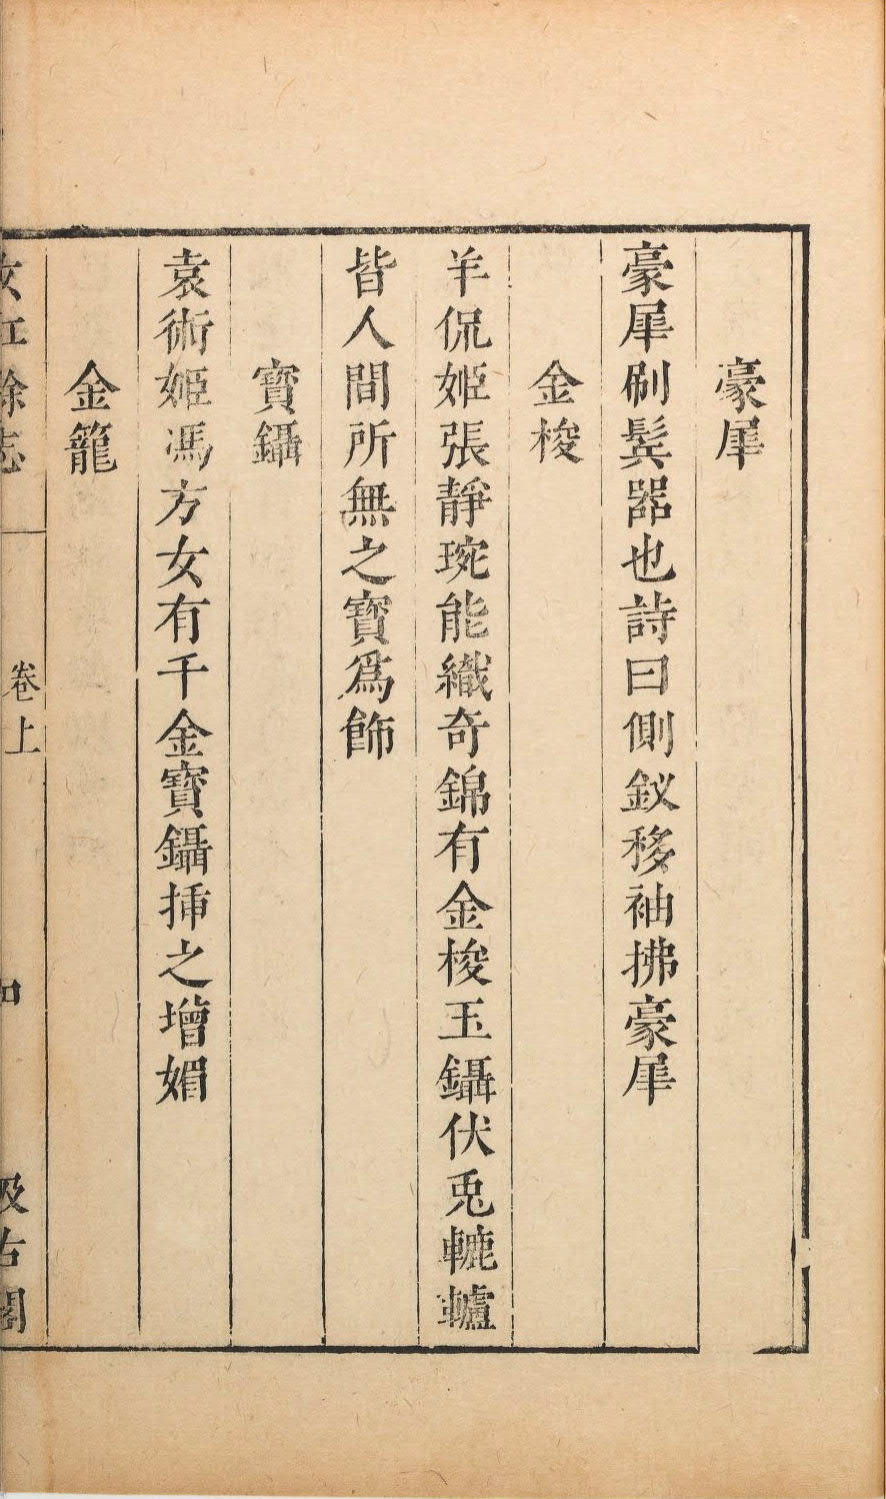 豪犀
豪犀刷鬂器也詩曰側釵移袖拂豪犀
金梭
羊侃姬張靜琬能織奇錦有金梭玉鑷伏兎轆轤
皆人間所無之寳爲飾
寳鑷
袁術姬馮方女有千金寳鑷揷之增媚
金籠
女紅餘志
卷上
汲古閣